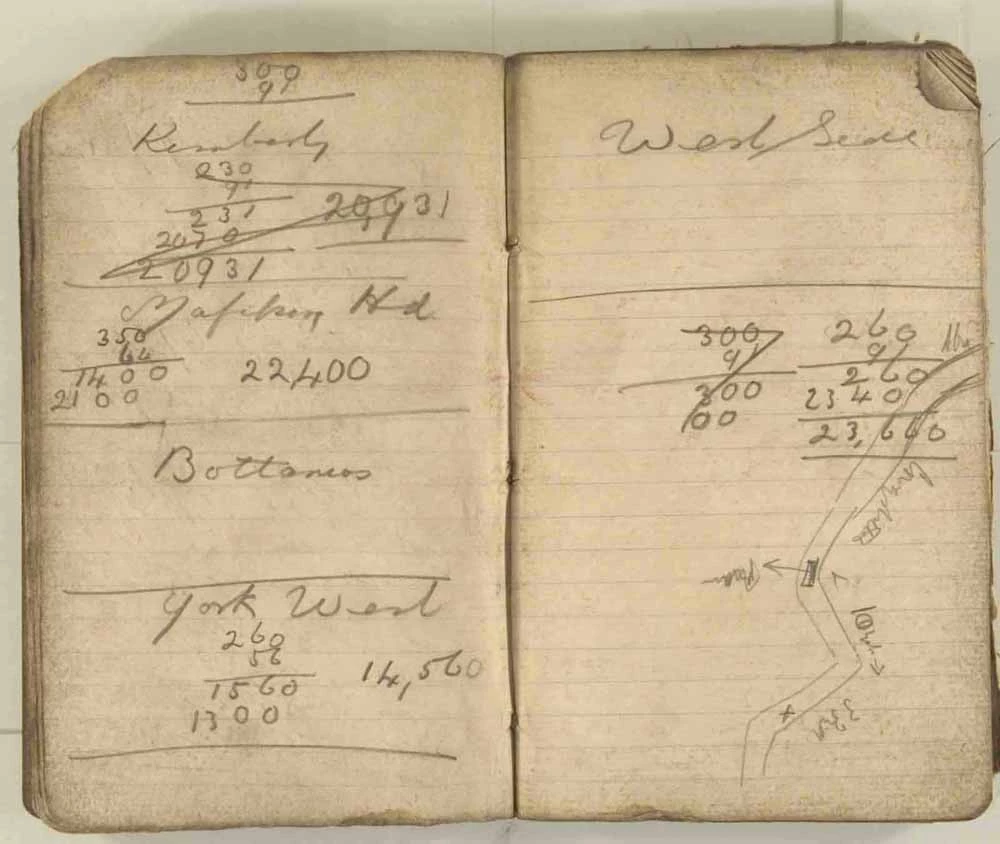 300
91
Kimberly
230
91
231
2070
20931
20,931
Mafikeng Hd
350
64
1400
2100
22,400
Bottamos
York West
260
56
1560
1300
14,560
West Side
300
91
300
00
260
91
260
2340
23,660